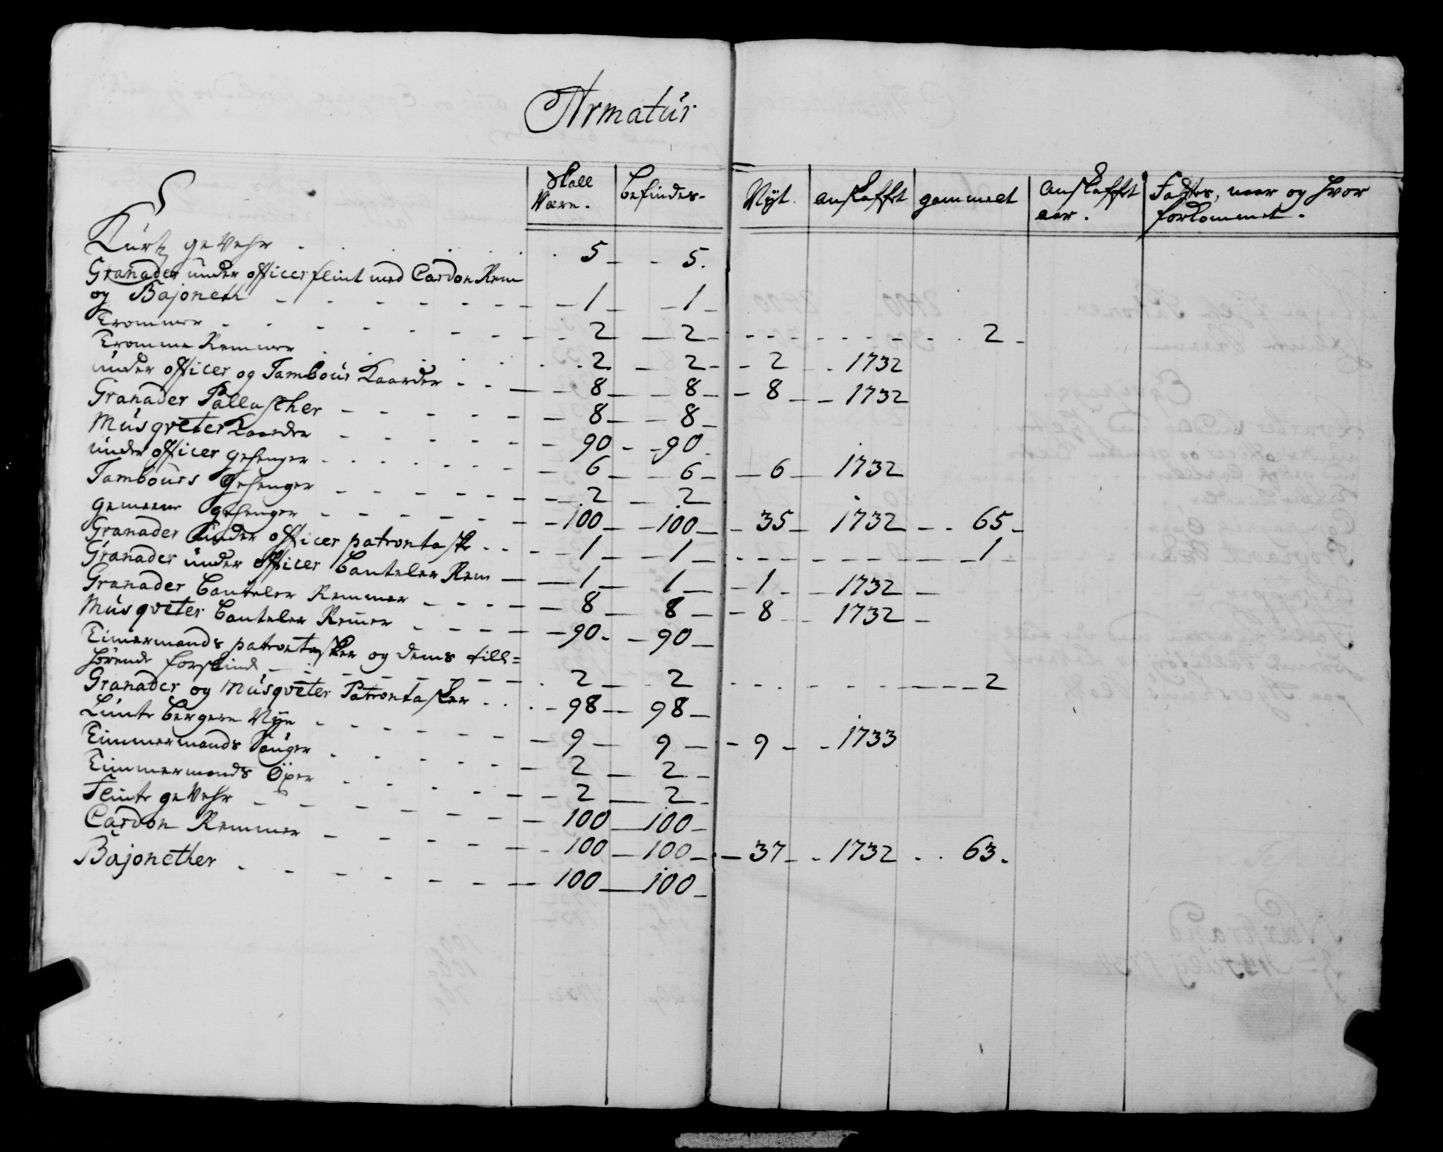 Armatur
Skall Være. befindes. Nyt. anskafft gammelt anskafft aar. Fattes, naar og hvor forkommet.
Kurtz geVehr 5 5.
Granader under officer flint med Cardon Rem
og Bajoneth 1 1
Trommer 2 2 2
Tromme Remmer 2 2 2 1732
under officer og Tambour Kaarder 8 8 8 1732
Granader Pallascher 8 8
Musqveter Kaarder 90 90
under officer gehenger 6 6 6 1732
Tambours gehenger 2 2
gemeene gehenger 100 100 35 1732 65
Granader under officer patrontaske 1 1 1
Granader under officer Banteler Rem 1 1 1 1732
Granader Banteler Remmer 8 8 8 1732
Musqveter Banteler Remer 90 90
Timermands patrontasker og dems till=
hørende forskind 2 2 2
Granader og Musqveter Patrontasker 98 98
Lunte bergere Nye 9 9 9 1733
Timmermands Sauger 2 2
Timmermands Øxer 2 2
Flinte geVehr 100 100
Cardon Remmer 100 100 37 1732 63.
Bajonether 100 100